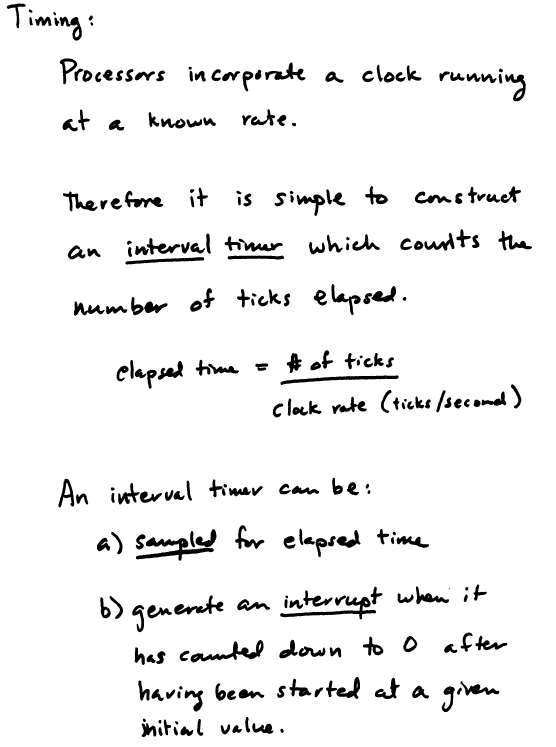 Timing:
Processors incorporate a clock running
at a known rate.
Therefore it is simple to construct
an interval timer which counts the
number of ticks elapsed.
elapsed time = # of ticks
clock rate (ticks/second)
An interval timer can be:
a) sampled for elapsed time
b) generate an interrupt when it
has counted down to 0 after
having been started at a given
initial value.